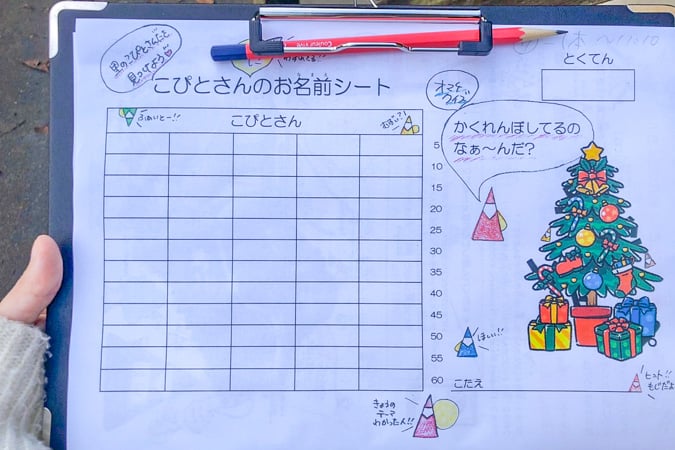 里のこびとさんたちを
見つけよう
こぴとさんのお名前シート
オマケ
クイズ
とくてん
こぴとさん
ふぁいと〜!!
かくれんぼしてるの
なぁ〜んだ?
5
10
15
20
25
30
35
40
45
50
55
60
ほいっ!!
こたえ
ヒント!!
もじだよ
きょうの
テーマ
わかったん!!